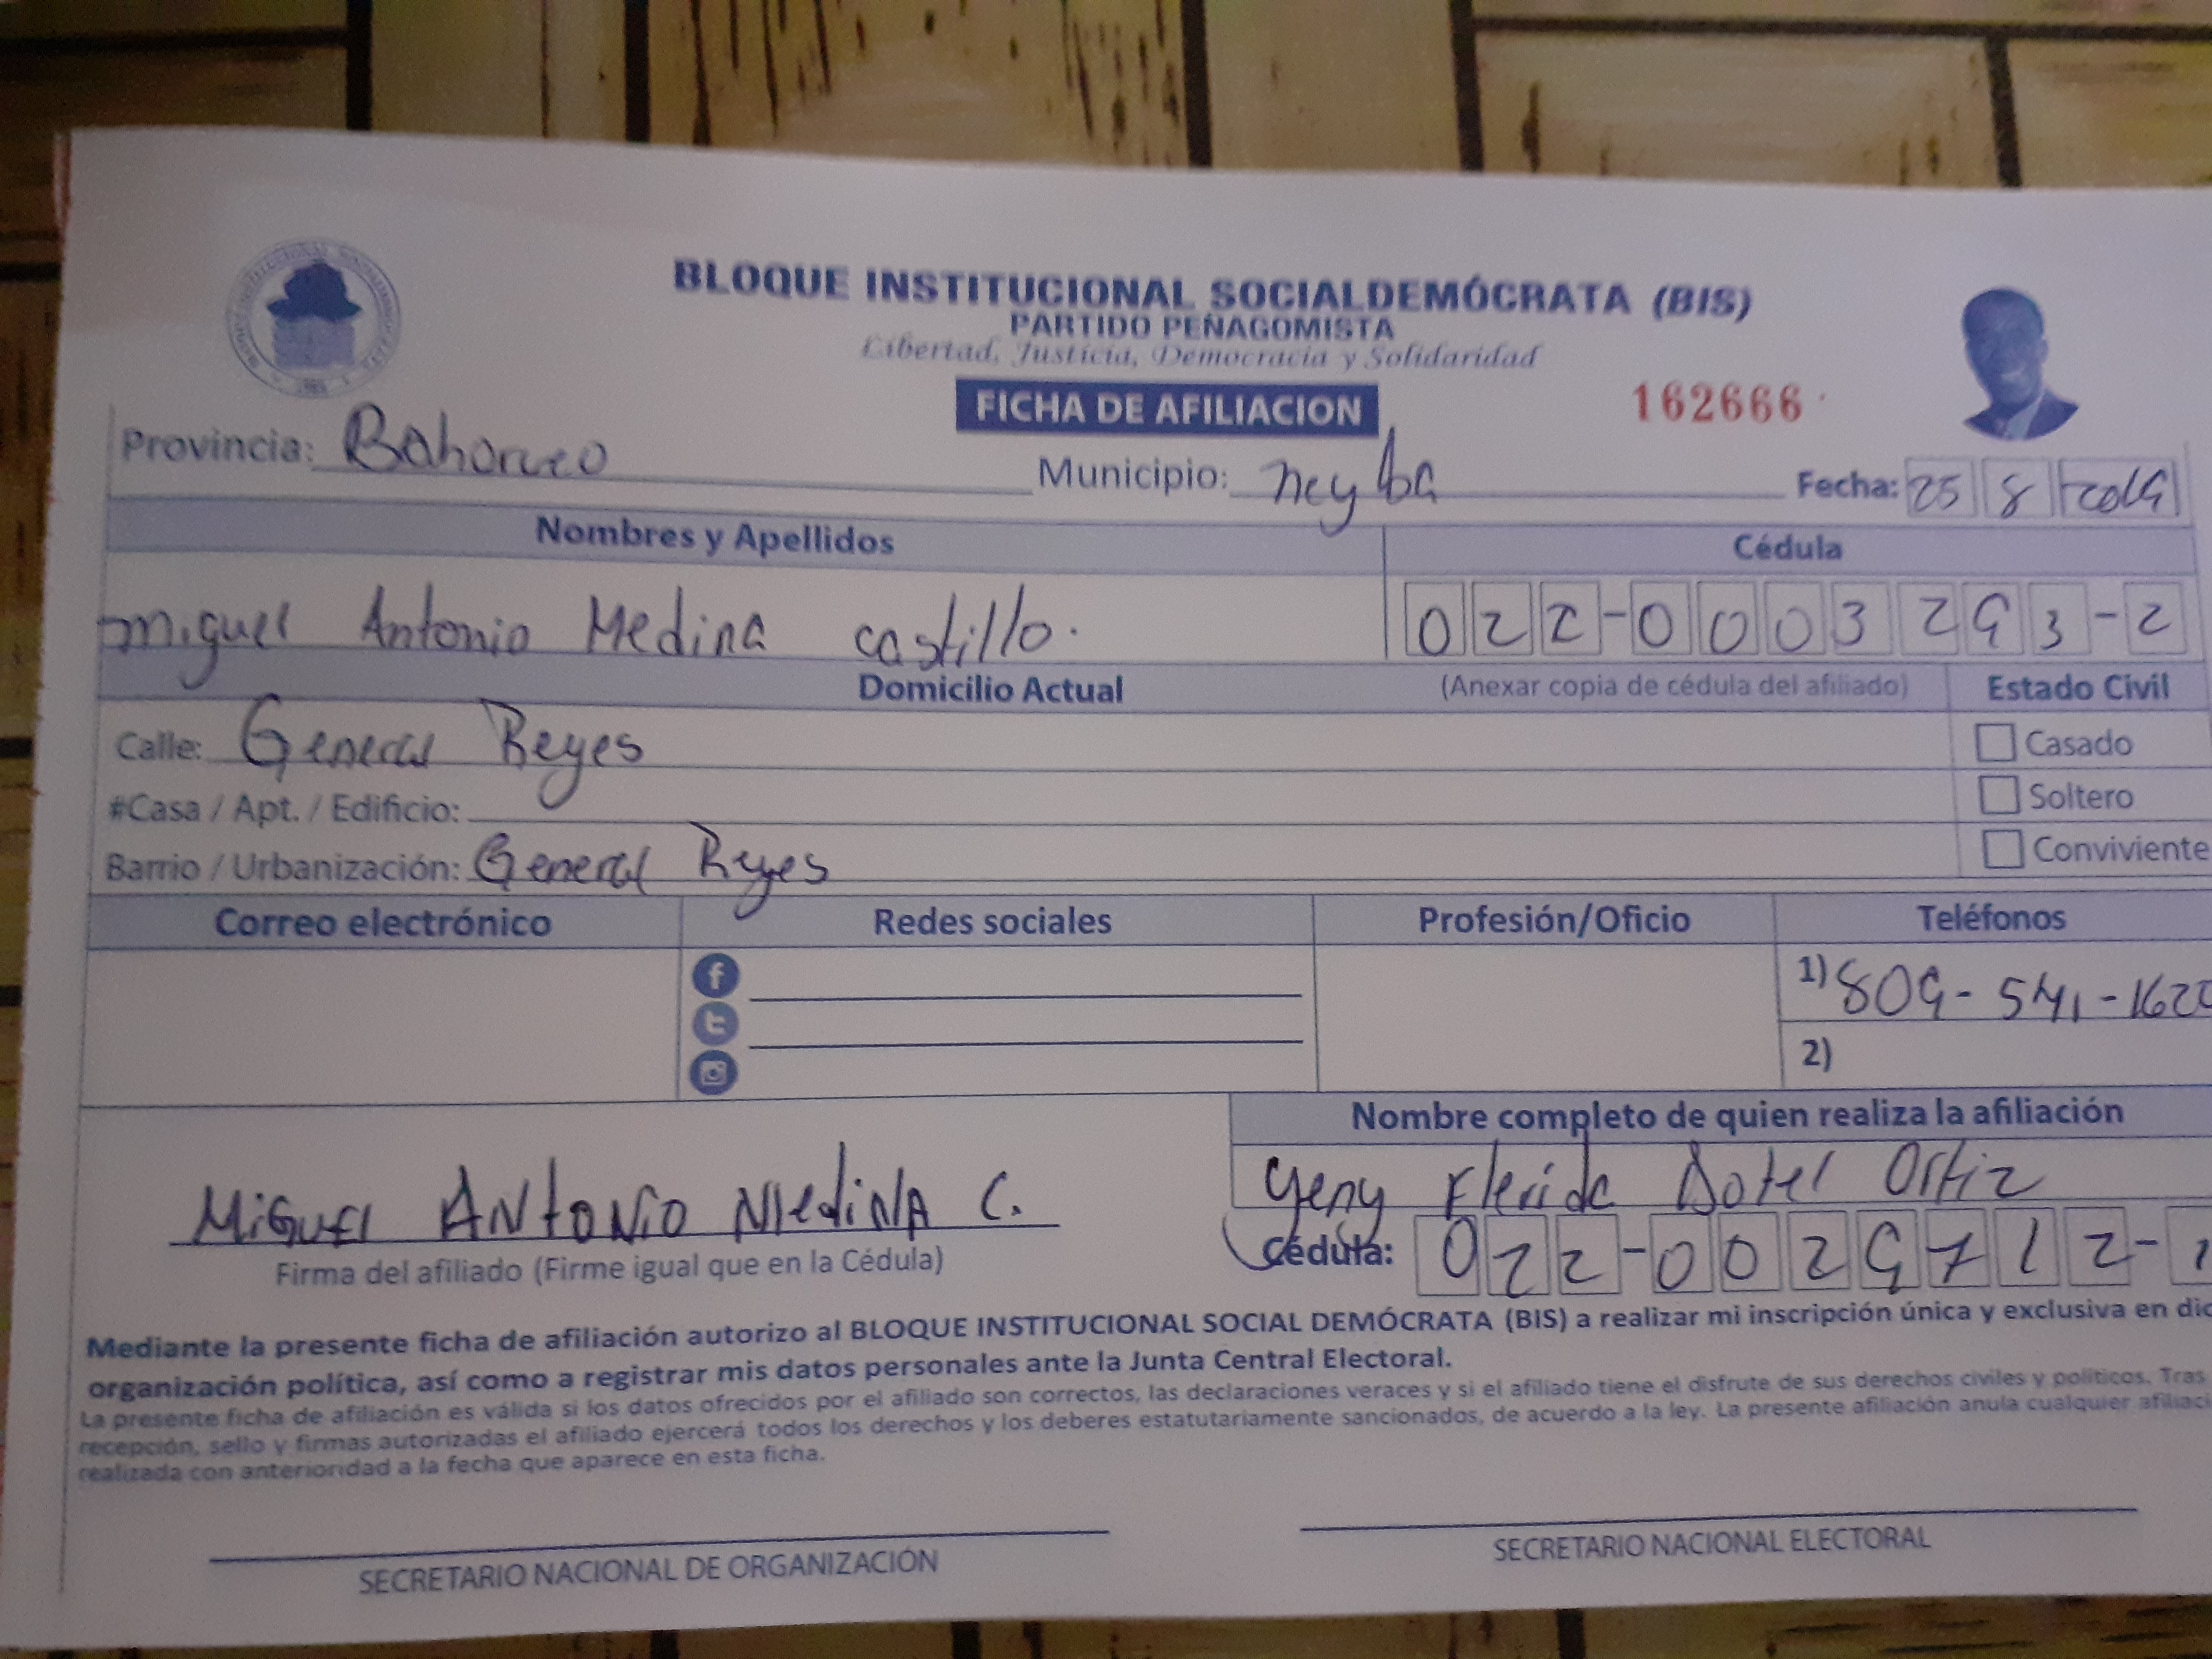 BLOQUE INSTITUCIONAL SOCIALDEMÓCRATA (BIS)
PARTIDO PEÑAGOMISTA
Libertad, Justicia, Democracia y Solidaridad
FICHA DE AFILIACION
162666
Provincia: Bahoruco Municipio: neyba Fecha: 25 8
Nombres y Apellidos Cédula
miguel Antonio Medina castillo. 022-0003293-2
Domicilio Actual (Anexar copia de cédula del afiliado) Estado Civil
Calle: General Reyes Casado
#Casa / Apt. / Edificio: Soltero
Barrio / Urbanización: General Reyes Conviviente
Correo electrónico Redes sociales Profesión/Oficio Teléfonos
1) 809-541-162
2)
Nombre completo de quien realiza la afiliación
Yeny Flerida Dotel Ortiz
MiGuEl ANtoNio MediNA C. Cédula: 022-0029712-1
Firma del afiliado (Firme igual que en la Cédula)
Mediante la presente ficha de afiliación autorizo al BLOQUE INSTITUCIONAL SOCIAL DEMÓCRATA (BIS) a realizar mi inscripción única y exclusiva en dic
organización política, así como a registrar mis datos personales ante la Junta Central Electoral.
La presente ficha de afiliación es válida si los datos ofrecidos por el afiliado son correctos, las declaraciones veraces y si el afiliado tiene el disfrute de sus derechos civiles y políticos. Tras
recepción, sello y firmas autorizadas el afiliado ejercerá todos los derechos y los deberes estatutariamente sancionados, de acuerdo a la ley. La presente afiliación anula cualquier afiliaci
realizada con anterioridad a la fecha que aparece en esta ficha.
SECRETARIO NACIONAL DE ORGANIZACIÓN SECRETARIO NACIONAL ELECTORAL